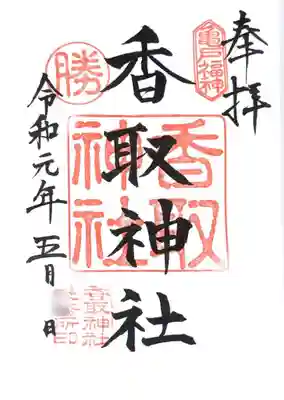 奉拝
亀戸福神
香取神社
香取
神社
勝
令和元年五月 日
香取神社